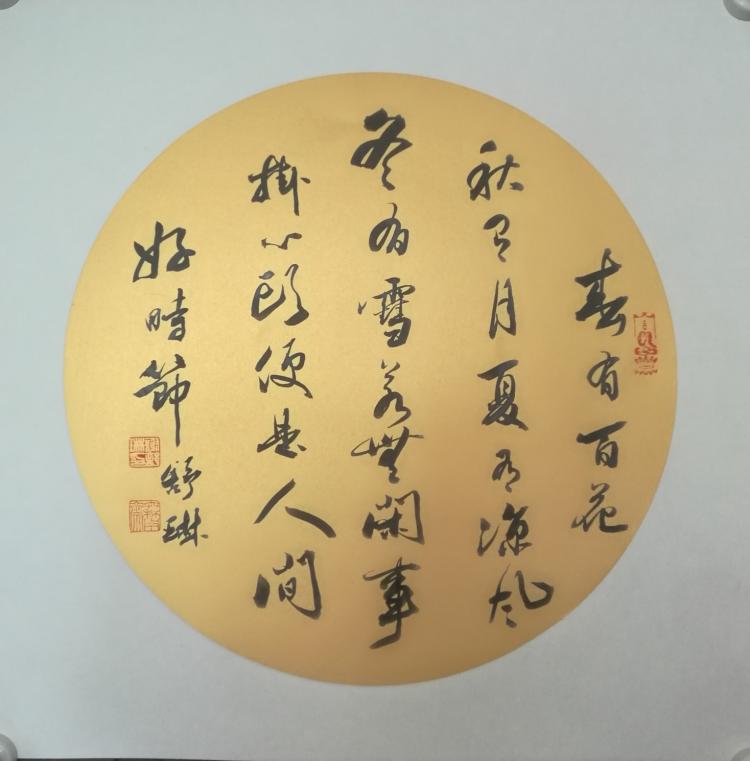 春有百花
秋有月夏有凉风
冬有雪若無閑事
掛心頭便是人间
好時節
舒琳